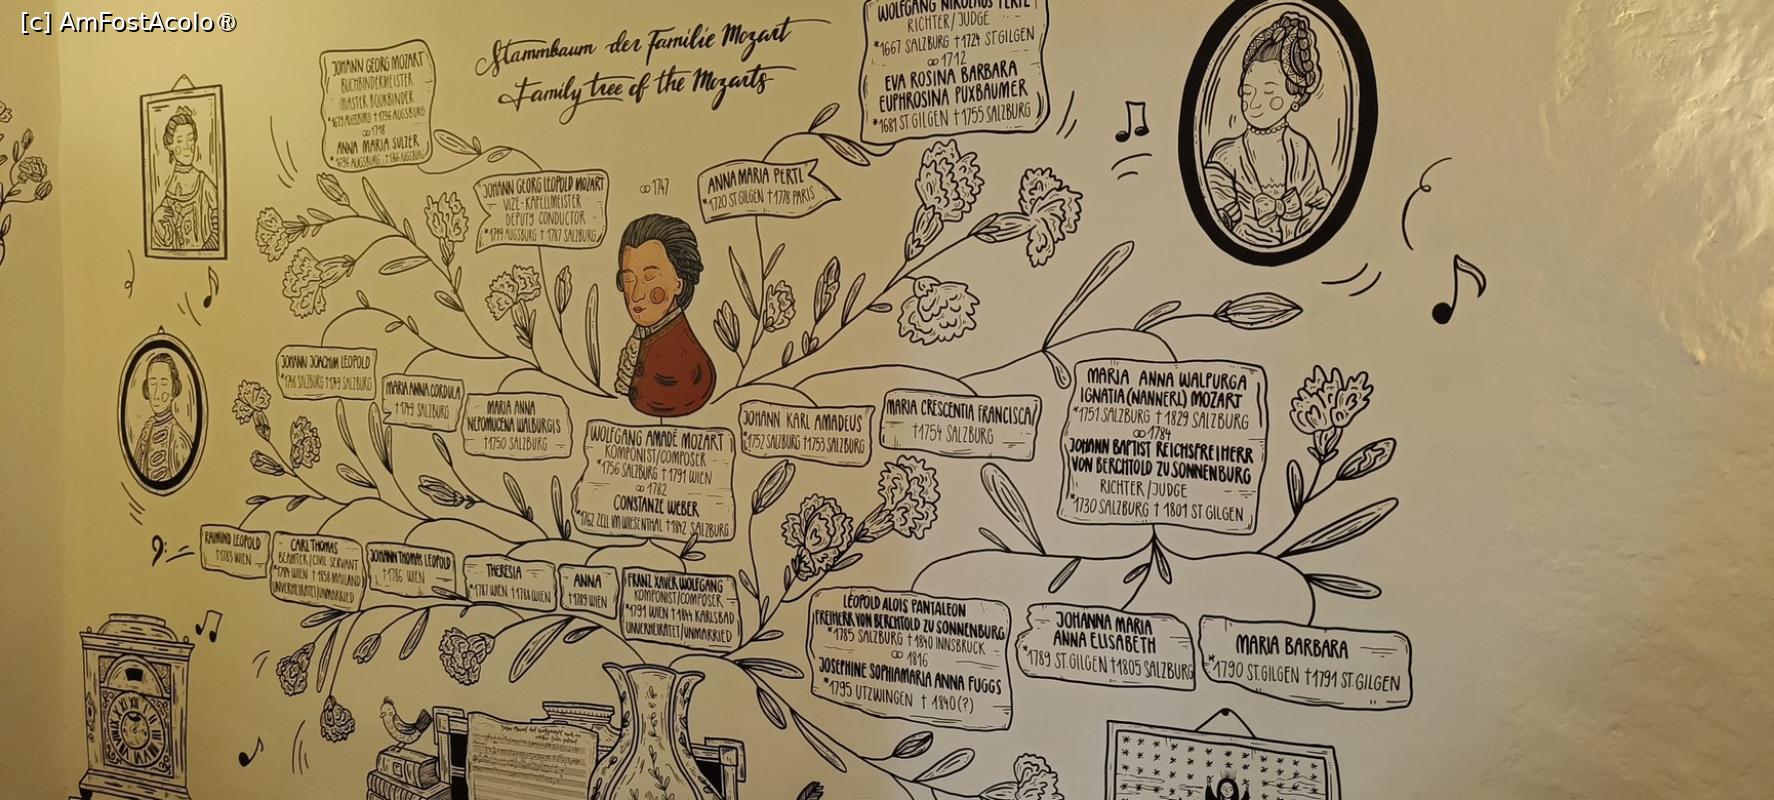 [c] AmFostAcolo®
Stammbaum der Familie Mozart
Family tree of the Mozarts
JOHANN GEORG MOZART
BUCHBINDERMEISTER
MASTER BOOKBINDER
*1679 AUGSBURG †1736 AUGSBURG
∞ 1718
ANNA MARIA SULZER
*1696 AUGSBURG †1766 AUGSBURG
WOLFGANG NIKOLAUS PERTL
RICHTER/JUDGE
*1667 SALZBURG †1724 ST.GILGEN
∞ 1712
EVA ROSINA BARBARA
EUPHROSINA PUXBAUMER
*1681 ST.GILGEN †1755 SALZBURG
JOHANN GEORG LEOPOLD MOZART
VIZE-KAPELLMEISTER
DEPUTY CONDUCTOR
*1719 AUGSBURG †1787 SALZBURG
∞ 1747
ANNA MARIA PERTL
*1720 ST.GILGEN †1778 PARIS
JOHANN JOACHIM LEOPOLD
*1748 SALZBURG †1749 SALZBURG
MARIA ANNA CORDULA
†1749 SALZBURG
MARIA ANNA
NEPOMUCENA WALBURGIS
†1750 SALZBURG
WOLFGANG AMADÉ MOZART
KOMPONIST/COMPOSER
*1756 SALZBURG †1791 WIEN
∞ 1782
CONSTANZE WEBER
*1762 ZELL IM WIESENTHAL †1842 SALZBURG
JOHANN KARL AMADEUS
*1752 SALZBURG †1753 SALZBURG
MARIA CRESCENTIA FRANCISCA
†1754 SALZBURG
MARIA ANNA WALPURGA
IGNATIA (NANNERL) MOZART
*1751 SALZBURG †1829 SALZBURG
∞ 1784
JOHANN BAPTIST REICHSFREIHERR
VON BERCHTOLD ZU SONNENBURG
RICHTER/JUDGE
*1730 SALZBURG †1801 ST GILGEN
RAIMUND LEOPOLD
†1783 WIEN
CARL THOMAS
BEAMTER/CIVIL SERVANT
*1784 WIEN †1858 MAILAND
UNVERHEIRATET/UNMARRIED
JOHANN THOMAS LEOPOLD
†1786 WIEN
THERESIA
*1787 WIEN †1788 WIEN
ANNA
†1789 WIEN
FRANZ XAVER WOLFGANG
KOMPONIST/COMPOSER
*1791 WIEN †1844 KARLSBAD
UNVERHEIRATET/UNMARRIED
LEOPOLD ALOIS PANTALEON
FREIHERR VON BERCHTOLD ZU SONNENBURG
*1785 SALZBURG †1840 INNSBRUCK
∞ 1816
JOSEPHINE SOPHIAMARIA ANNA FUGGS
*1795 UTZWINGEN †1840(?)
JOHANNA MARIA
ANNA ELISABETH
*1789 ST.GILGEN †1805 SALZBURG
MARIA BARBARA
*1790 ST.GILGEN †1791 ST.GILGEN